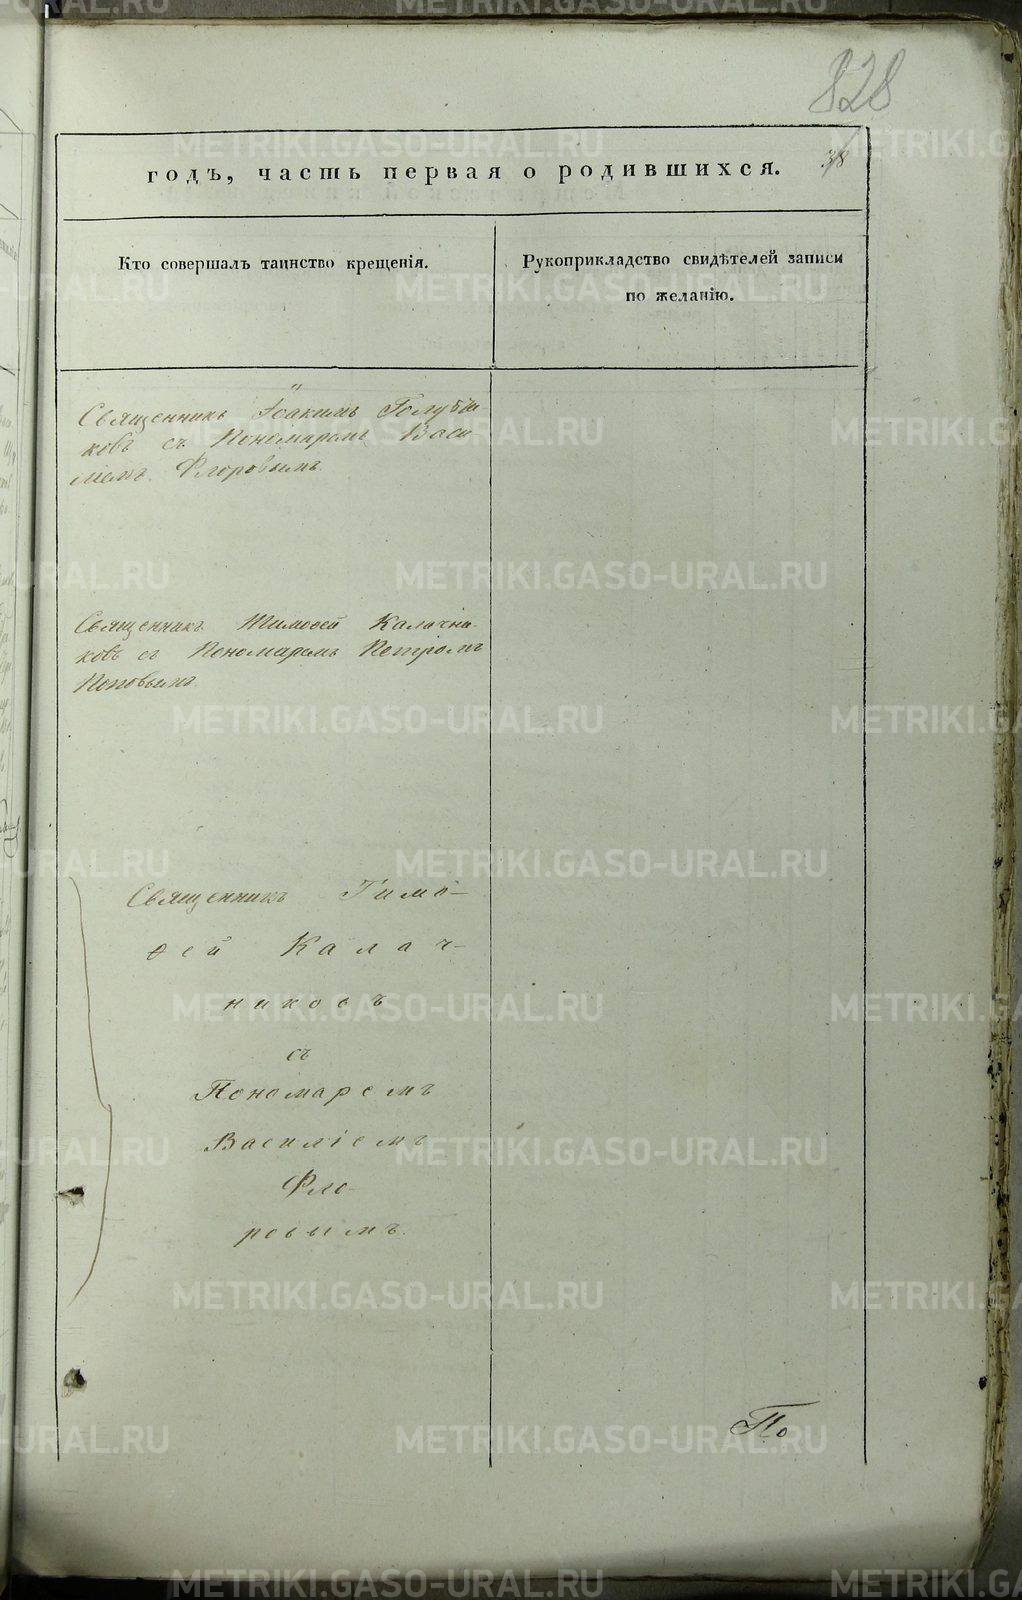 828
38
годъ, часть первая о родившихся.
Кто совершалъ таинство крещенія.
Рукоприкладство свидѣтелей записи
по желанію.
Священникъ Іоакимъ Голубчи
ковъ съ Пономаремъ Васи
ліемъ Флоровымъ
Священникъ Тимоѳей Калачни-
ковъ съ Пономаремъ Петромъ
Поповымъ
Священникъ Тимо-
ѳей Калач-
никовъ
съ
Пономаремъ
Василіемъ
Фло-
ровымъ.
По
METRIKI.GASO-URAL.RU